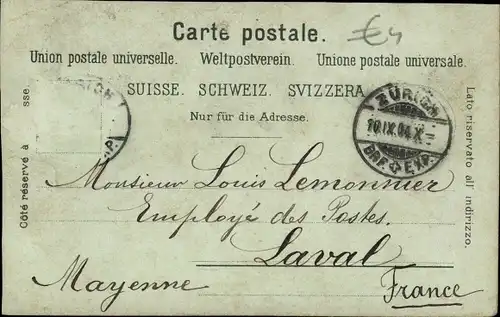 Carte postale.
€4
Union postale universelle. Weltpostverein. Unione postale universale.
SUISSE. SCHWEIZ. SVIZZERA
Nur für die Adresse.
ZÜRICH
10.IX.04.X
BRF. EXP.
Côté réservé à sse.
Lato riservato all' indirizzo.
Monsieur Louis Lemonnier
Employé des Postes.
Laval
Mayenne
France